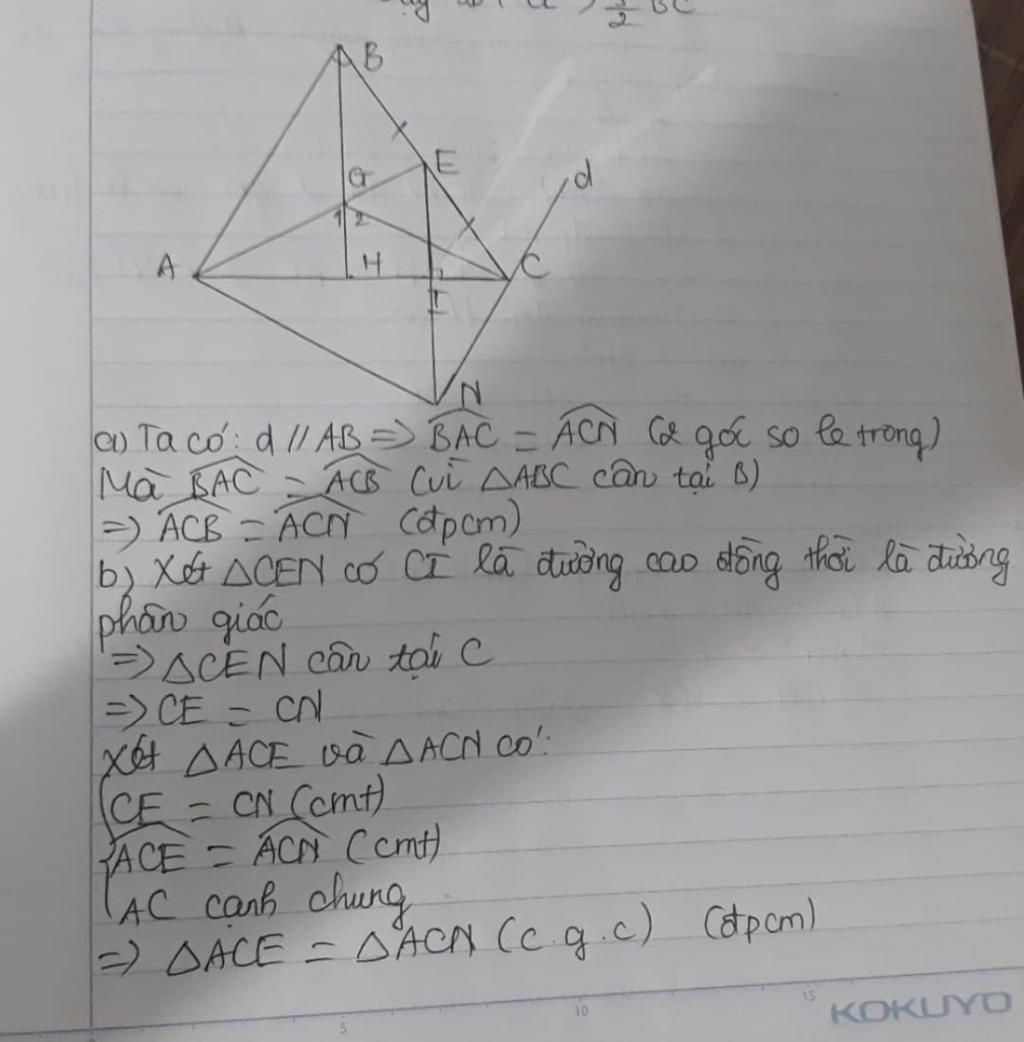 BC
2
B
E
d
G
1 2
A
H
C
I
N
a) Ta có: d // AB => BAC = ACN (2 góc so le trong)
Mà BAC = ACB (vì △ABC cân tại B)
=> ACB = ACN (đpcm)
b) Xét △CEN có CI là đường cao đồng thời là đường
phân giác
=> △CEN cân tại C
=> CE = CN
Xét △ACE và △ACN có:
CE = CN (cmt)
ACE = ACN (cmt)
AC cạnh chung
=> △ACE = △ACN (c.g.c) (đpcm)
5 10 15
KOKUYO